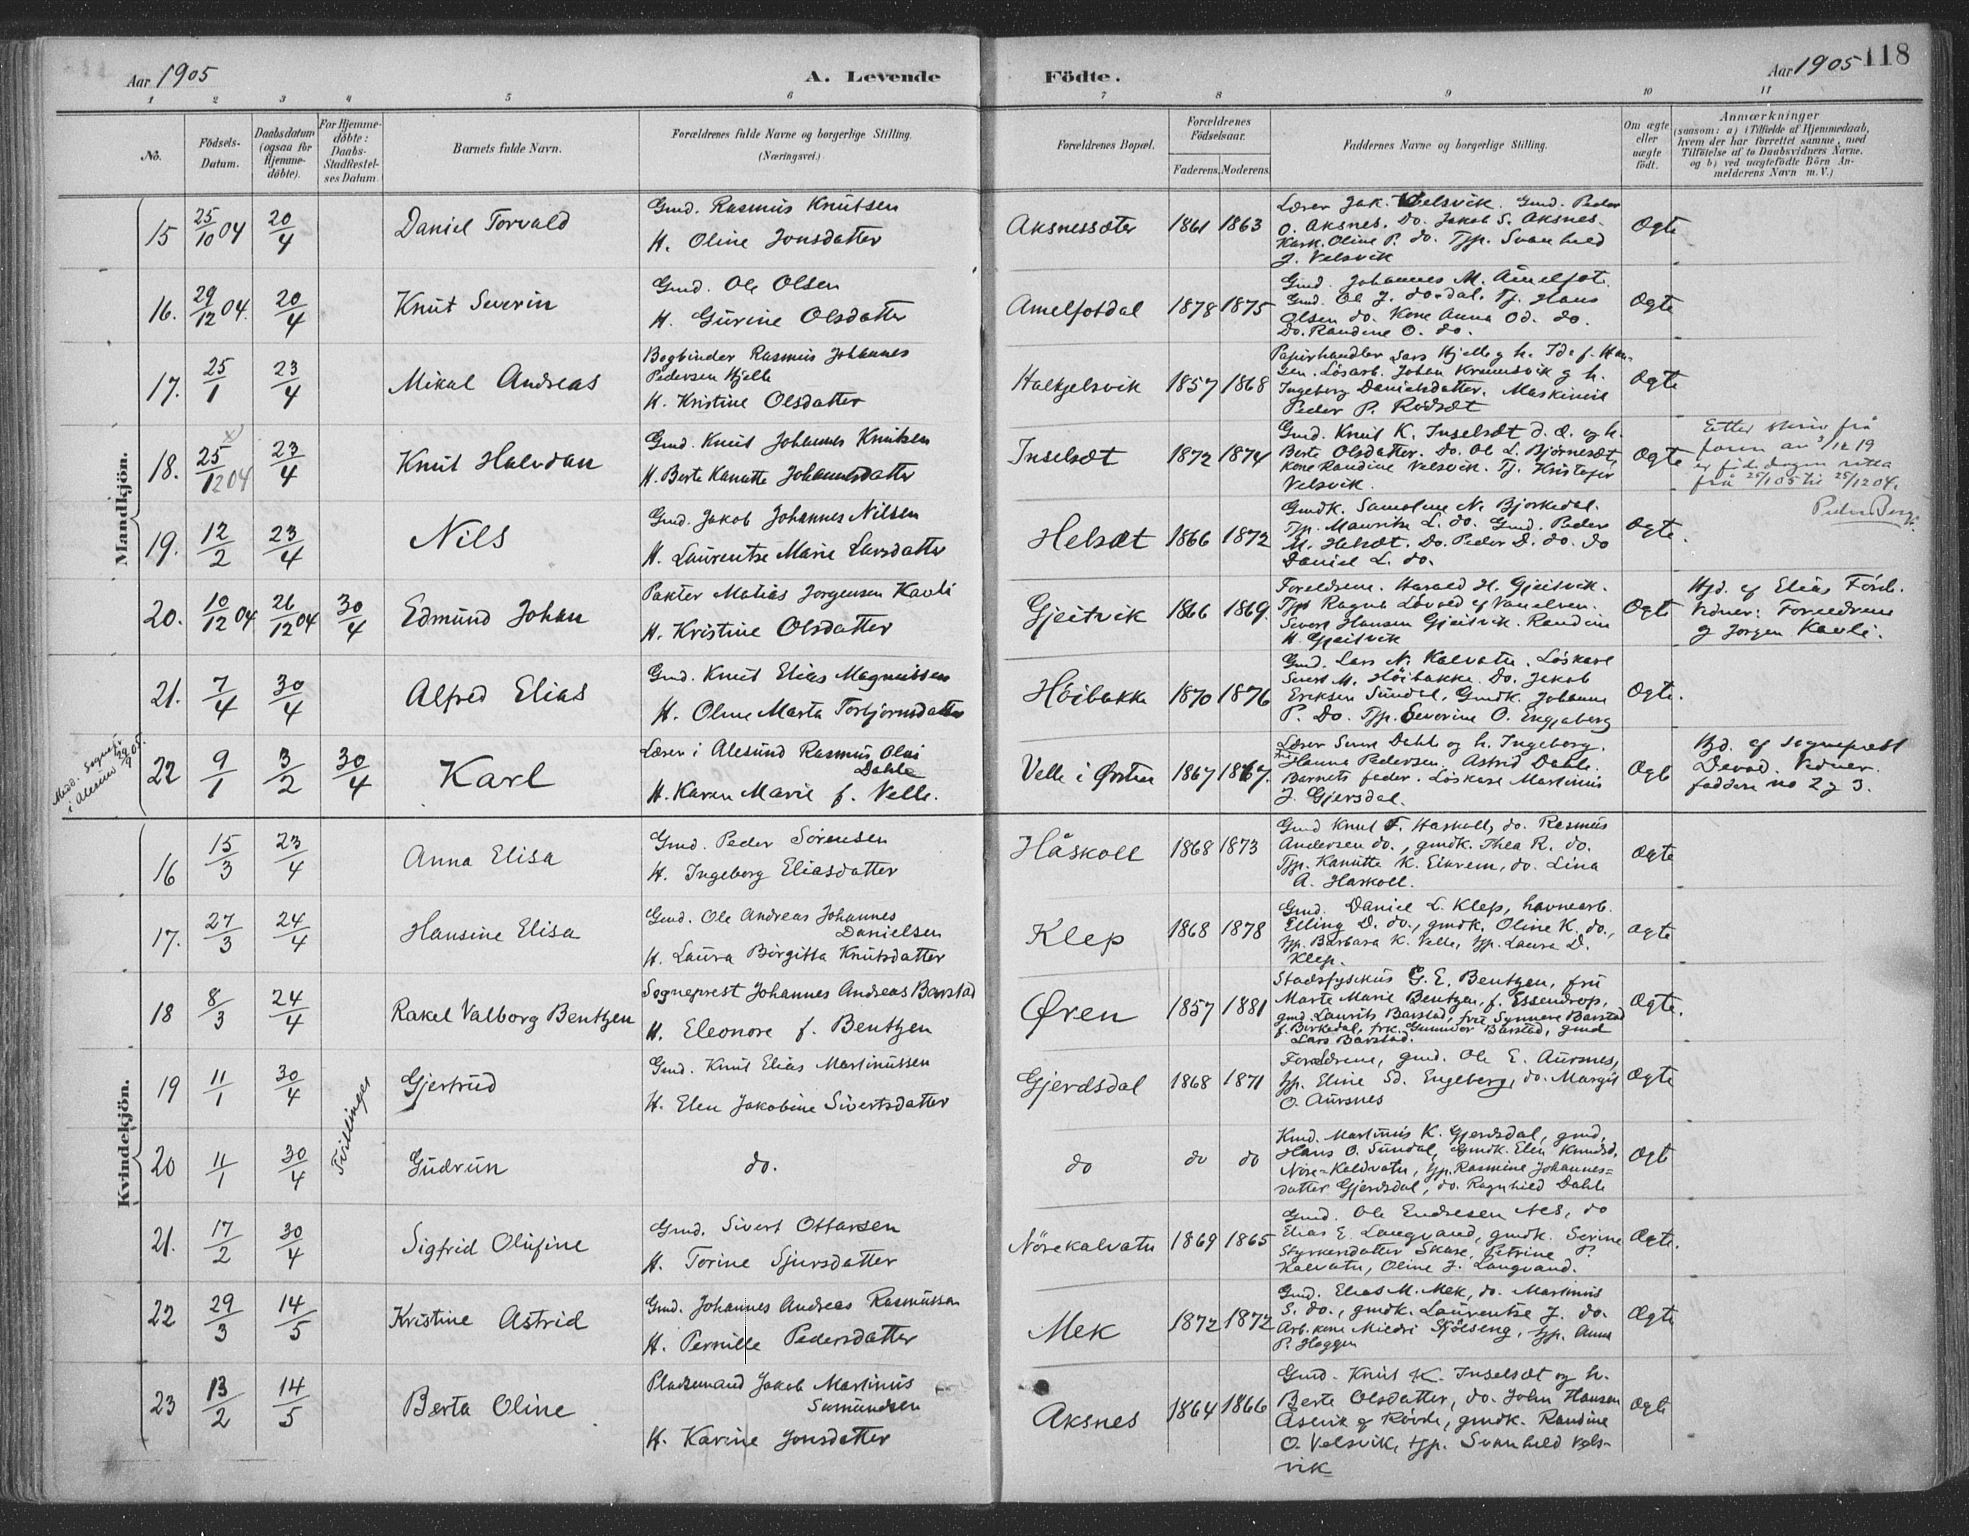 Aar 1905
A. Levende
Födte.
Aar 1905 118
1 2 3 4 5 6 7 8 9 10 11
No.
Födsels-
Datum.
Daabsdatum
(ogsaa for
Hjemme-
döbte).
For Hjemme-
döbte:
Daabs-
Stadfæstel-
ses Datum.
Barnets fulde Navn.
Forældrenes fulde Navne og borgerlige Stilling.
(Næringsvei.)
Forældrenes Bopæl.
Forældrenes
Födselsaar.
Faderens. Moderens.
Faddernes Navne og borgerlige Stilling.
Om ægte
eller
uægte
födt.
Anmærkninger
(saasom: a) i Tilfælde af Hjemmedaab,
hvem der har forrettet samme, med
Tilföielse af to Daabsvidners Navne.
og b) ved uægtefödte Börn An-
melderens Navn m. V.)
Mandkjön.
15 25/10 04 20/4 Daniel Torvald
Gmd. Rasmus Knutsen
H. Oline Jonsdatter
Aksnessæter 1861 1863
Lærer Jak. Velsvik. Gmd. Peder
O. Aksnes. Do. Jakob S. Aksnes.
Kark. Oline P. do. Tjp. Svanhild
J. Velsvik
Ogte
16. 29/12 04. 20/4 Knut Severin
Gmd. Ole Olsen
H. Gurine Olsdatter
Amelfotdal 1878 1875
Gmd. Johannes M. Åmelfot.
Gmd. Ole J. do-dal. Tj. Hans
Olsen do. Kone Anna Od. do.
Do. Randine O. do.
Ogte
17. 25/1 23/4 Mikal Andreas
Bogbinder Rasmus Johannes
Pedersen Hjelle
H. Kristine Olsdatter
Halkjelsvik 1857 1868
Papirhandler Lars Hjelle g h. Ida f. Han-
sen. Løsarb. Johan Krumsvik g h.
Ingeborg Danielsdatter. Maskinist
Peder P. Rødsæt
Ogte
18. 25/12 04 23/4 Knut Halvdan
Gmd. Knut Johannes Knutsen
H. Berte Kanutte Johannesdatter
Inselsæt 1872 1874
Gmd. Knut K. Inselsæt d. Æ. og h.
Berte Olsdatter. Do. Ole L. Bjørnesæt,
Kone Randine Velsvik. Tj. Kristofer
Velsvik.
Ogte
Etter skriv frå
form av 3/12 19
er føde dagen retta
frå 25/1 05 til 25/12 04.
Peder Berg
19. 12/2 23/4 Nils
Gmd. Jakob Johannes Nilsen
H. Laurentse Marie Larsdatter
Helsæt 1866 1872
Gmdk. Samoline N. Bjorkedal.
Tjp. Mauritse L. do. Gmd. Peder
M. Helsæt. Do. Peder D. do. do
Daniel L. do.
Ogte.
20. 10/12 04 26/12 04 30/4 Edmund Johan
Pakter Matias Jorgensen Kavli
H. Kristine Olsdatter
Gjeitvik 1866 1869.
Foreldrene. Harald H. Gjeitvik.
Tjp. Ragna Løvold af Vanelven.
Sivert Hansen Gjeitvik. Randine
H. Gjeitvik
Ogte
Hjd. af Elias Förd.
Vidner: Foreldrene
g Jorgen Kavli.
21. 7/4 30/4 Alfred Elias
Gmd. Knut Elias Magnussen
H. Oline Marta Torbjornsdatter
Höibakke 1870 1876
Gmd. Lars N. Kalvatn. Löskarl
Sivert M. Höibakke. Do. Jakob
Eriksen Sundal, Gmdk. Johanne
P. Do. Tjp. Severine O. Engjeberg
Ogte.
Medd. Sognepr.
i Alesund 29/9 05.
22 9/1 3/2 30/4 Karl
Lærer i Alesund Rasmus Olai
Dahle
H. Karen Marie f. Velle.
Velle i Ørsten 1867 1867.
Lærer Sivert Dahle og h. Ingeborg.
Frk. Hanna Pedersen. Astrid Dahle.
Barnets fader. Löskare Martinus
J. Gjersdal.
Ogte
Hjd. af sogneprest
Devold. Vidner.
faddere no 2 g 3.
Kvindekjön.
16 15/3 23/4 Anna Elisa
Gmd. Peder Sörensen
H. Ingeborg Eliasdatter
Håskoll 1868 1873
Gmd Knut F. Haskoll, do. Rasmus
Andersen do., gmdk. Thea R. do.
Tjp. Kanutte K. Eikrem, do. Lina
A. Haskoll.
Ogte
17. 27/3 24/4 Hansine Elisa
Gmd. Ole Andreas Johannes
Danielsen
H. Laura Birgitta Knutsdatter
Klep 1868 1878
Gmd. Daniel L. Klep, havnearb.
Elling D. do., gmdk. Oline K. do.,
tjp. Barbara K. Velle, tjp. Laura D.
Klep.
ogte
18 8/3 24/4 Rakel Valborg Bentzen
Sogneprest Johannes Andreas Barstad
H. Eleonore f. Bentzen
Øren 1857 1881
Stadsfysikus G. E. Bentzen, fru
Marte Marie Bentzen, f. Essendrop,
gmd. Laurits Barstad, frue Synnøve Barstad
f. Birkedal, frk. Gunnvor Barstad, gmd
Lars Barstad.
Ogte.
19 11/1 30/4 Tvillinger Gjertrud
Gmd. Knut Elias Martinussen
H. Elen Jakobine Sivertsdatter
Gjerdsdal 1868 1871
Forældrene, gmd. Ole E. Aursnes,
tjp. Eline Sd. Engeberg, do. Margit
O. Aursnes
Ogte
20 11/1 30/4 Gudrun
do.
do do do
Kmd. Martinus K. Gjerdsdal, gmd.
Hans O. Sundal, Gmdk. Elen Knudsd.
Nöre-Kaldvatn, tjp. Rasmine Johannes-
datter Gjerdsdal, do. Ragnhild Dahle
Ogte
21. 17/2 30/4 Sigfrid Olufine
Gmd. Sivert Ottarsen
H. Torine Sjursdatter
Nörekalvatn 1869 1865
Gmd. Ole Endresen Nes, do
Elias E. Langvand, gmdk. Serine
Styrkersdatter Skare, Petrine P.
Kalvatn, Oline J. Langvand.
Ogte.
22 29/3 14/5 Kristine Astrid
Gmd. Johannes Andreas Rasmusson
H. Pernille Pedersdatter
Mek 1872 1872
Gmd. Elias M. Mek, do. Martinus
S. do., gmdk. Laurentse J. do.
Arb. kone Mildri Sjölseng, tjp. Anna
P. Hoggen
Ogte
23 13/2 14/5 Berta Oline
Pladsemand Jakob Martinus
Samundsen
H. Karine Jonsdatter
Aksnes 1864 1866
Gmd. Knut K. Inselsæt og h.
Berte Olsdatter, do. John Hansen
Aservik af Rövde, gmdk. Randine
O. Velsvik, tjp. Svanhild Vels-
vik
Ogte